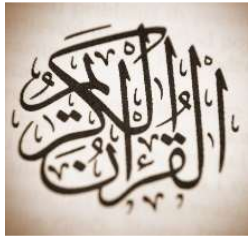 القُرْآن الكَرِيم